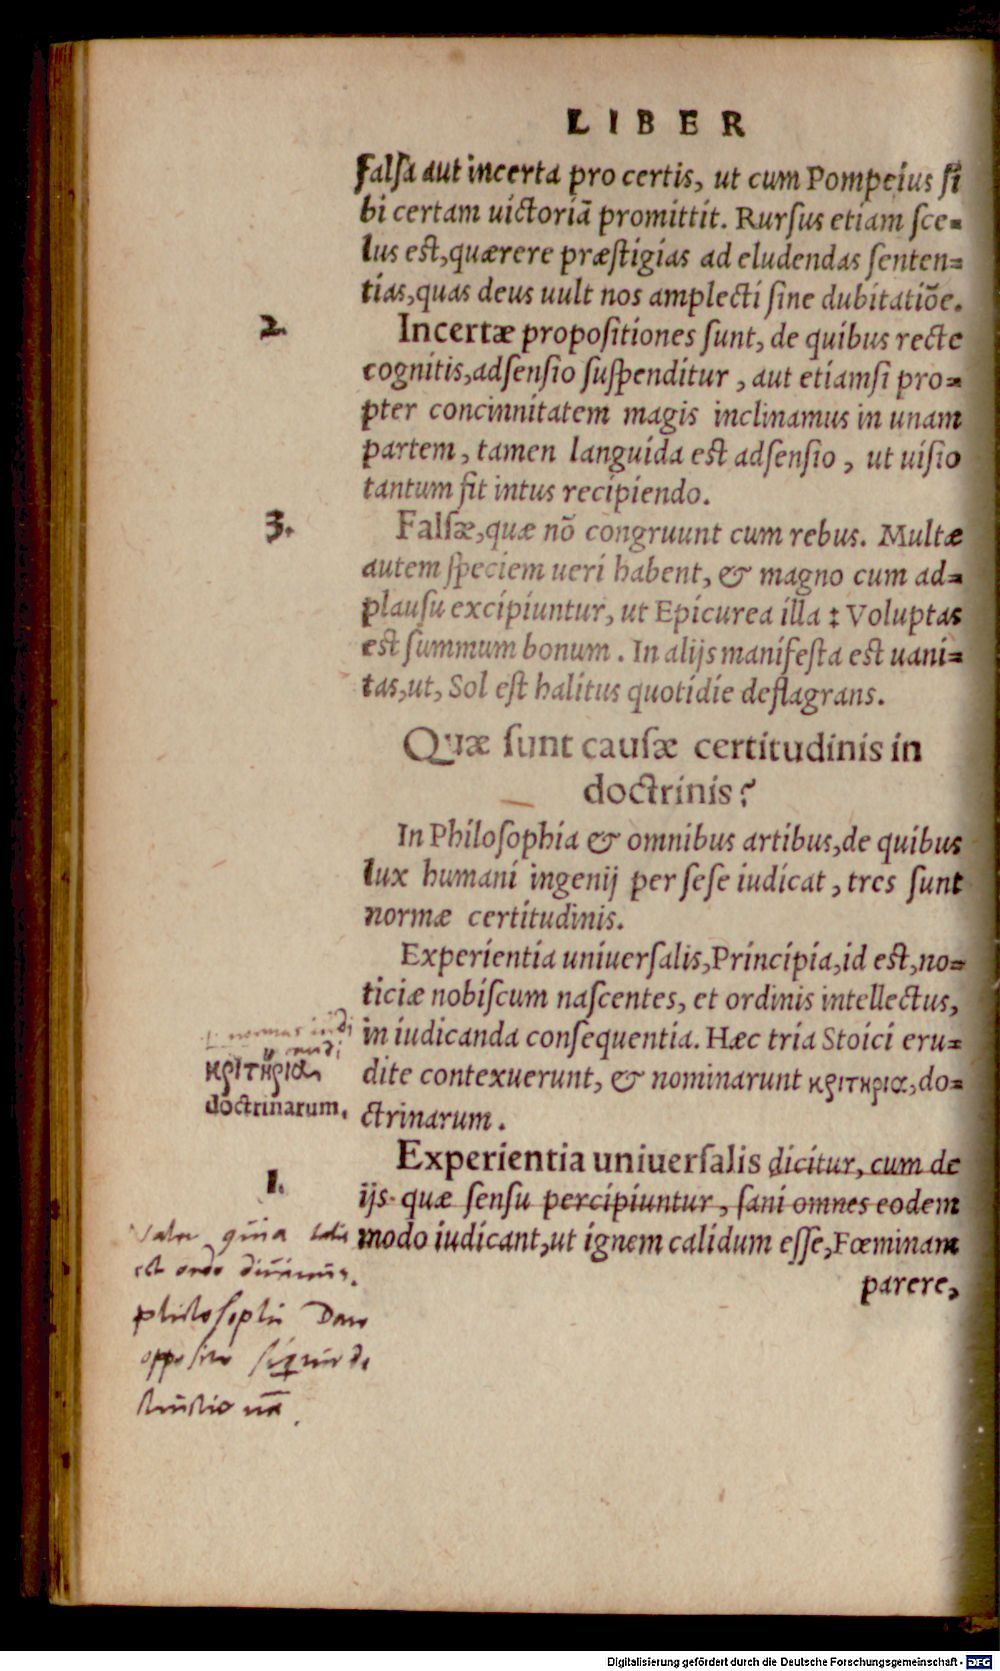 LIBER
falsa aut incerta pro certis, ut cum Pompeius si
bi certam uictoriā promittit. Rursus etiam sce-
lus est, quærere præstigias ad eludendas senten-
tias, quas deus uult nos amplecti sine dubitatiōe.
2.
Incertæ propositiones sunt, de quibus recte
cognitis, adsensio suspenditur, aut etiamsi pro-
pter concinnitatem magis inclinamus in unam
partem, tamen languida est adsensio, ut uisio
tantum fit intus recipiendo.
3.
Falsæ, quæ nō congruunt cum rebus. Multæ
autem speciem ueri habent, & magno cum ad-
plausu excipiuntur, ut Epicurea illa : Voluptas
est summum bonum. In alijs manifesta est uani-
tas, ut, Sol est halitus quotidie deflagrans.
Quæ sunt causæ certitudinis in
doctrinis?
In Philosophia & omnibus artibus, de quibus
lux humani ingenij per sese iudicat, tres sunt
normæ certitudinis.
Experientia uniuersalis, Principia, id est, no-
ticiæ nobiscum nascentes, et ordinis intellectus,
in iudicanda consequentia. Hæc tria Stoici eru-
dite contexuerunt, & nominarunt κριτηρια, do-
ctrinarum.
normas
κριτηρια
doctrinarum.
1.
Experientia uniuersalis dicitur, cum de
ijs quæ sensu percipiuntur, sani omnes eodem
modo iudicant, ut ignem calidum esse, Fœminam
parere,
quia
est ordo diuinus.
philosophi
Digitalisierung gefördert durch die Deutsche Forschungsgemeinschaft - DFG